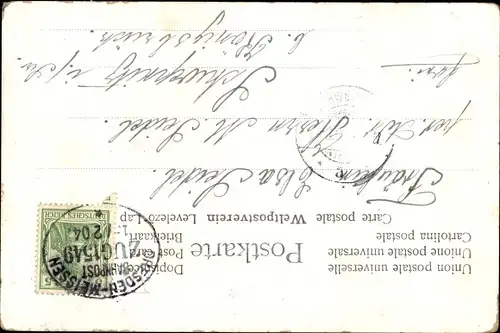 Union postale universelle
Union postale universale
Cartolina postale
Carte postale Weltpostverein Levelezö-Lap
Dopisnice Post Card
Briefkaart
Postkarte
DEUTSCHES REICH
5
DRESDEN-MEISSEN
BAHNPOST
ZUG 1549
04
Fräulein Elsa Seidel
per. Adr. Herrn M. Seidel.
Schwepnitz i/Sa.
b. Königsbrück.